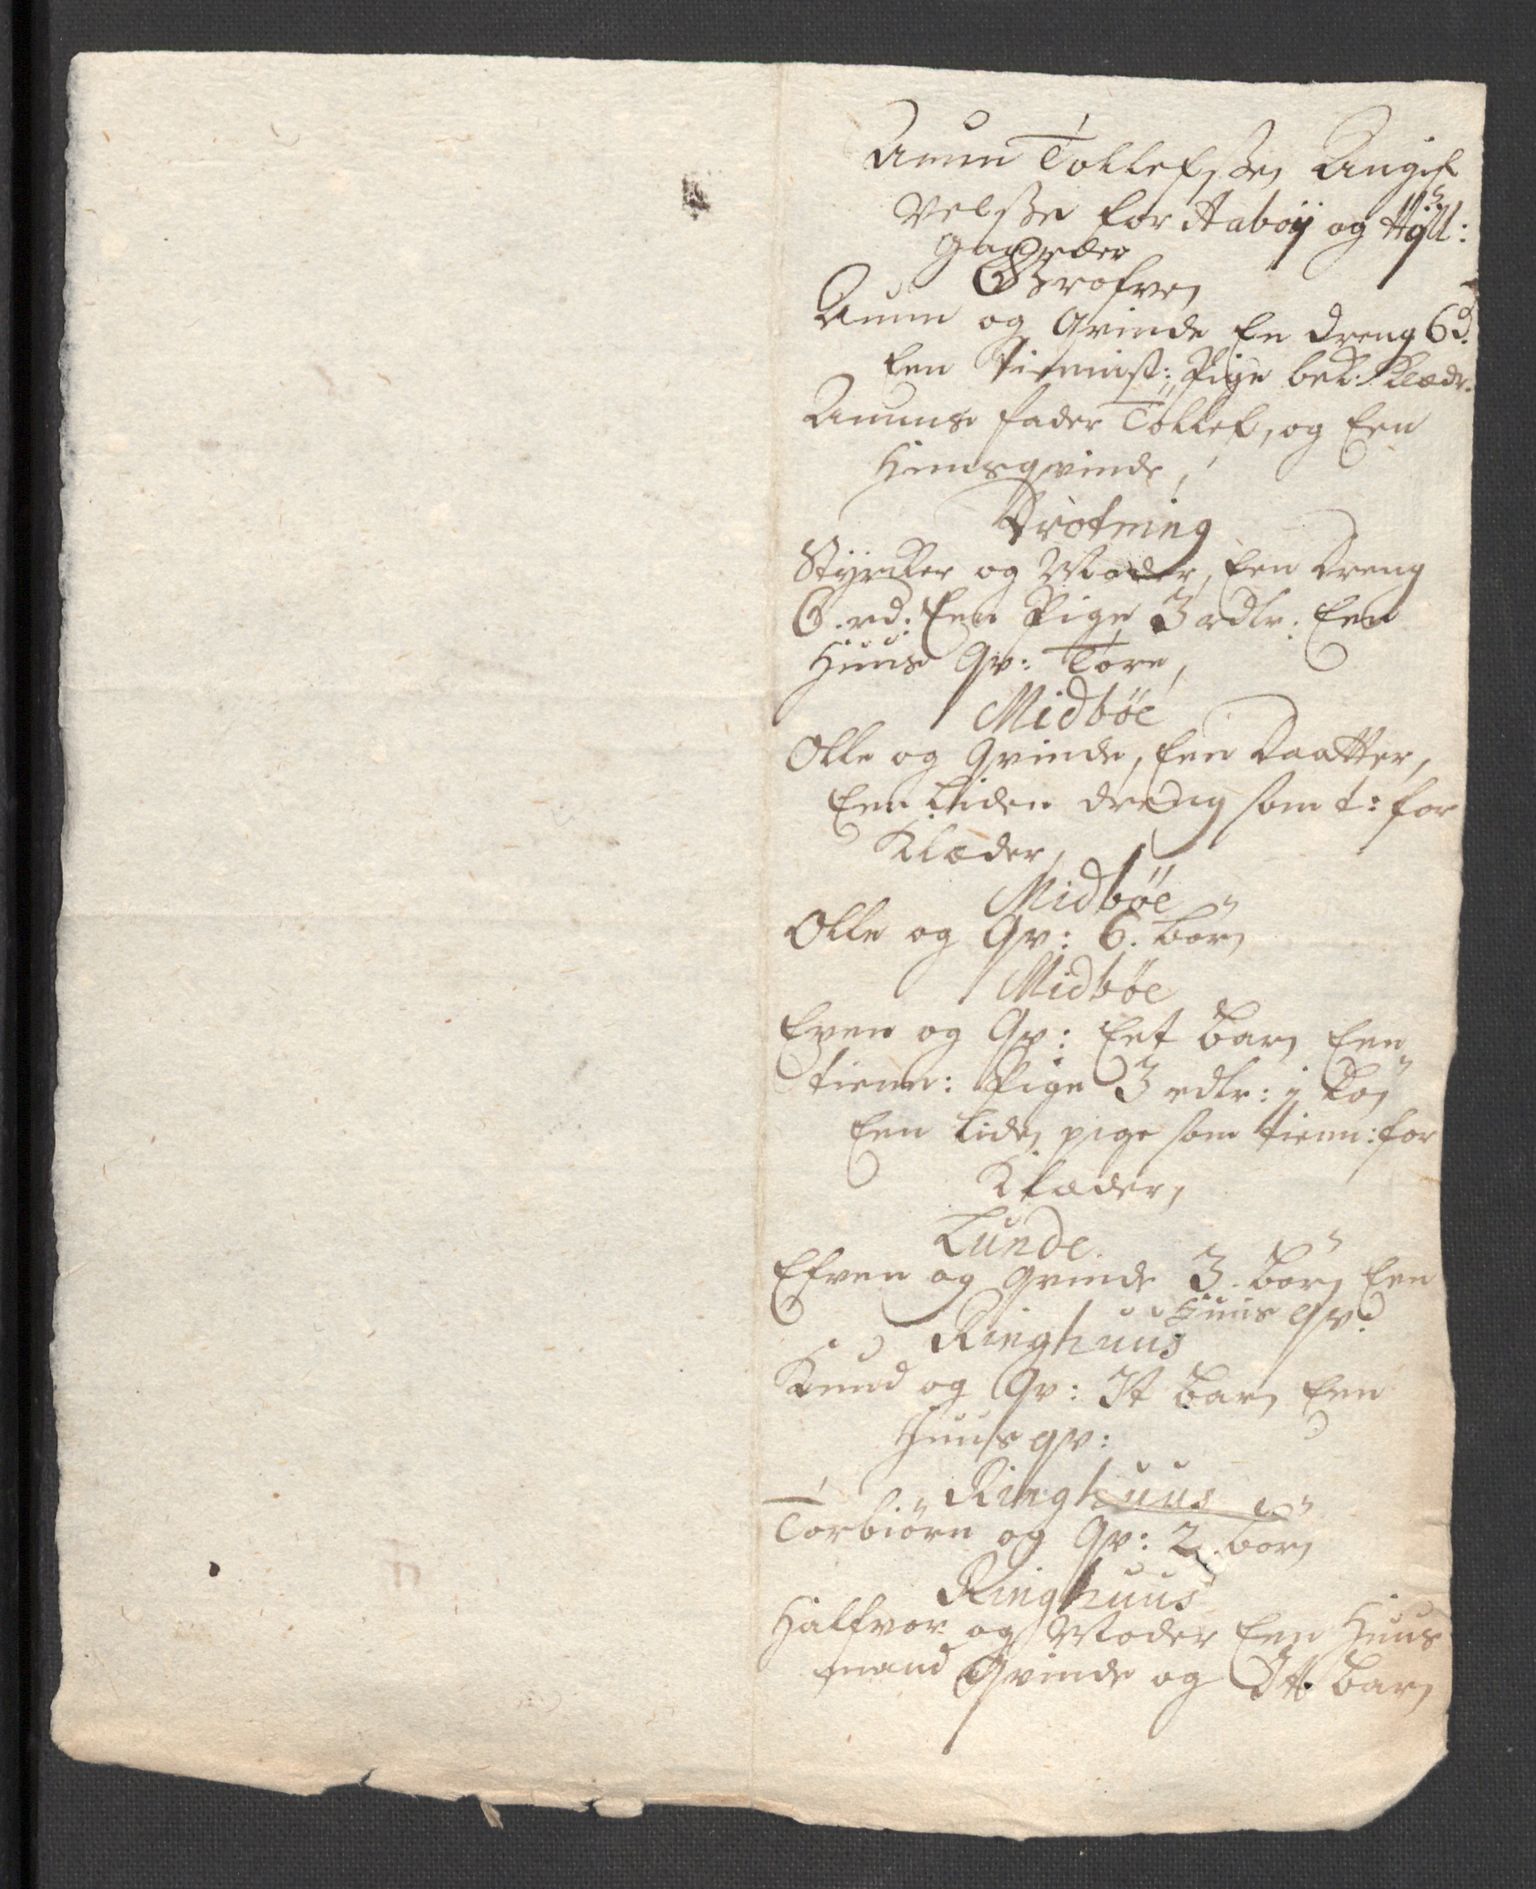 Aanun Tollefssen Angif
velsse for Aabøÿ og
Grofven
Aanun og Qvinde Een dreng 6 d.
Een Pige bek: Klæder
Aanuns fader Tollef, og Een
Huusqvinde,
Drotning
Styrcker og Moder, Een Dreng
6. rd: Een Pige 3 rdlr: Een
Huus Qv: Tore,
Midbøe
Olle og Qvinde, Een Daatter,
Een Liden dreng som t: for
Klæder,
Midbøe
Olle og Qv: 6. børn
Midbøe
Even og Qv: Eet barn Een
tienn: Pige 3 rdlr: i Løn
Een liden pige som tienn: for
Klæder,
Lunde
Efven og Qvinde 3. børn Een
Huus qv:
Ringhuus
Knud og Qv: It barn Een
Huus qv:
Ringhuus
Torbiørn og Qv: 2. børn
Ringhuus
Halfvor og Moder Een Huus
mand Qvinde og It barn